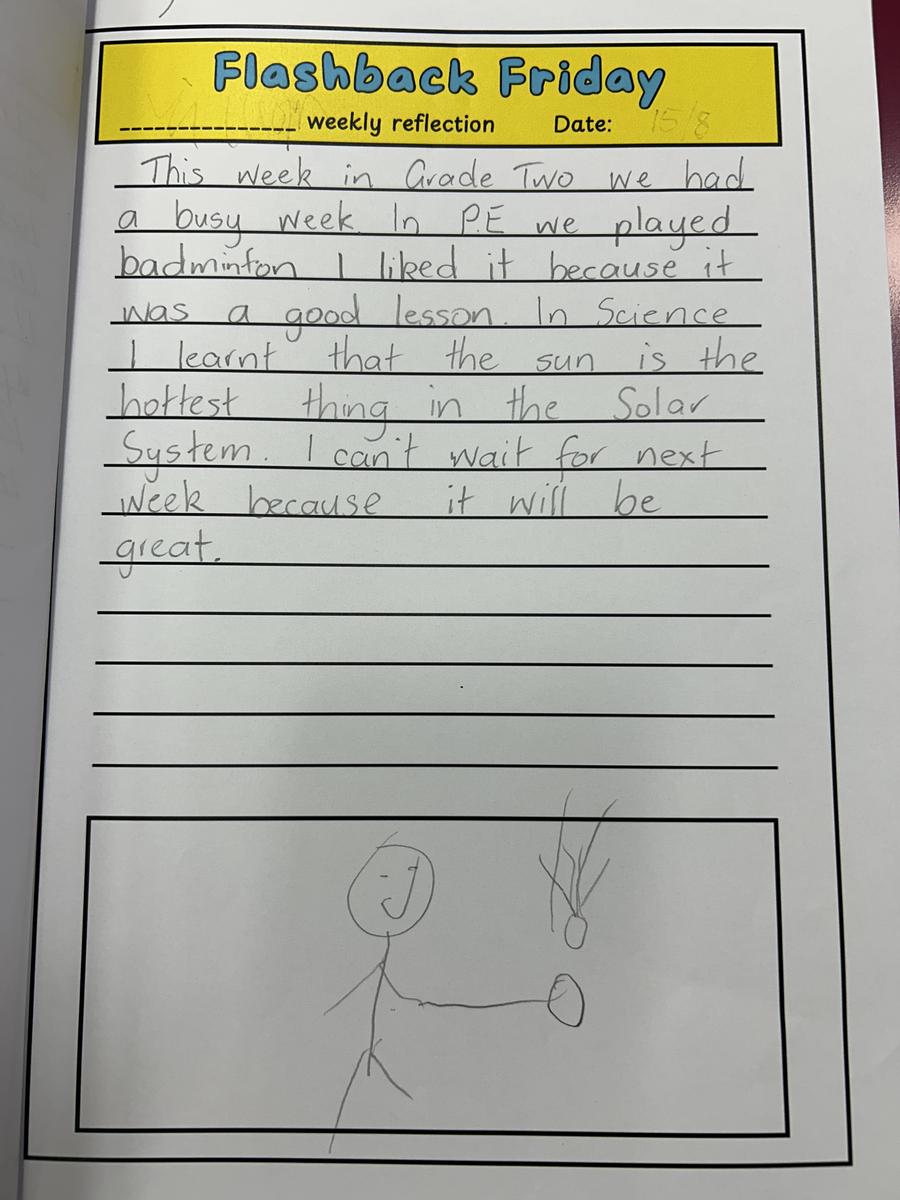 Flashback Friday
weekly reflection Date: 15/8
This week in Grade Two we had
a busy week. In P.E we played
badminton I liked it because it
was a good lesson. In Science
I learnt that the sun is the
hottest thing in the Solar
System. I can't wait for next
week because it will be
great.